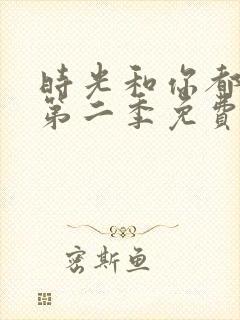 時光和你都
第二季免費
密斯魚